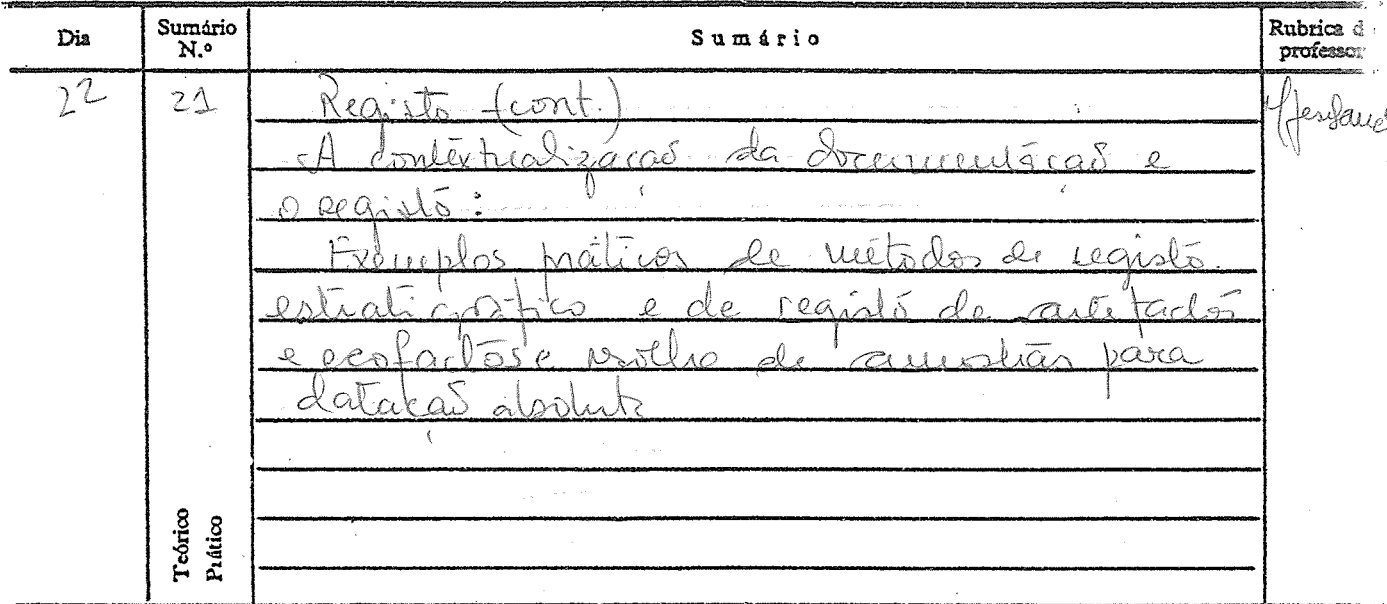 Dia Sumário N.º Sumário Rubrica d professor
22 21 Registo (cont.)
A contextualização da documentação e
o registo:
Exemplos práticos de métodos de registo
estratigráfico e de registo de artefactos
e ecofactos e recolha de amostras para
datação absoluta
Teórico
Prático